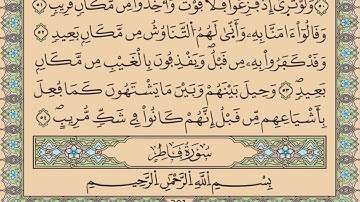 وَلَوْ تَرَىٰ إِذْ فَزِعُوا۟ فَلَا فَوْتَ وَأُخِذُوا۟ مِن مَّكَانٍ قَرِيبٍ ٥١
وَقَالُوٓا۟ ءَامَنَّا بِهِۦ وَأَنَّىٰ لَهُمُ ٱلتَّنَاوُشُ مِن مَّكَانٍۭ بَعِيدٍ ٥٢
وَقَدْ كَفَرُوا۟ بِهِۦ مِن قَبْلُ ۖ وَيَقْذِفُونَ بِٱلْغَيْبِ مِن مَّكَانٍۭ
بَعِيدٍ ٥٣ وَحِيلَ بَيْنَهُمْ وَبَيْنَ مَا يَشْتَهُونَ كَمَا فُعِلَ
بِأَشْيَاعِهِم مِّن قَبْلُ ۚ إِنَّهُمْ كَانُوا۟ فِى شَكٍّ مُّرِيبٍۭ ٥٤
سُورَةُ فَاطِرٍ
بِسْمِ ٱللَّهِ ٱلرَّحْمَٰنِ ٱلرَّحِيمِ